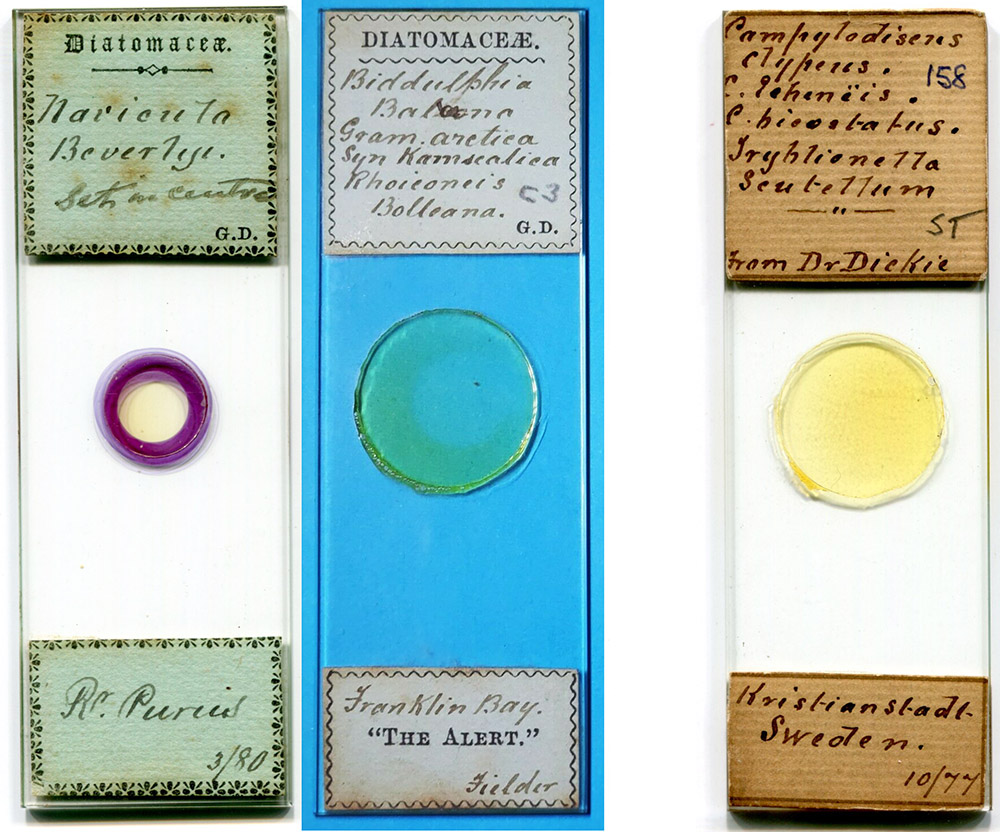 Diatomaceæ.
Navicula
Beverlyi.
Set in centre
G.D.
Rr. Purus
3/80
DIATOMACEÆ.
Biddulphia
Balæna
Gram. arctica
Syn Kamscalica
Rhoiconeis
C3
Bolleana.
G.D.
Franklin Bay.
"THE ALERT."
Fielder
Campylodiscus
Clypeus.
158
C. Eheneïis.
C. bicostatus.
Tryblionella
Scutellum
"
ST
From Dr Dickie
Kristianstadt
Sweden.
10/77